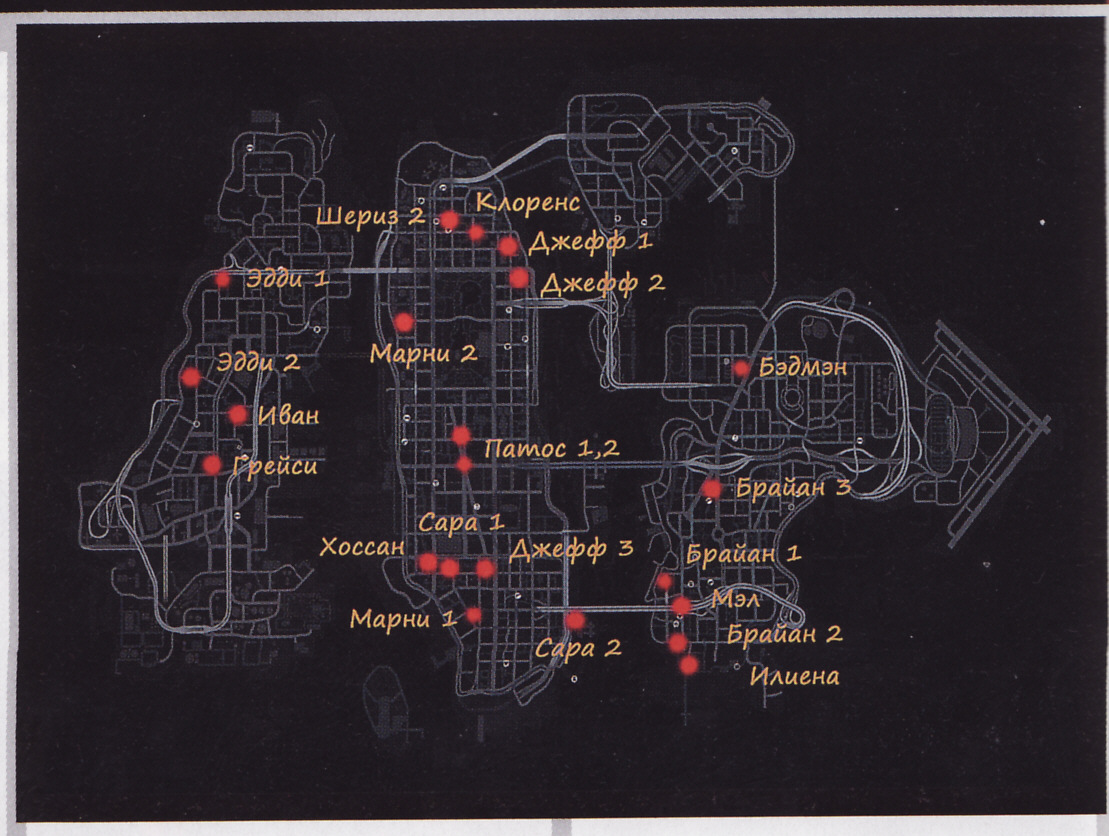 Клоренс
Шериз 2
Джефф 1
Эдди 1
Джефф 2
Марни 2
Эдди 2
Бэдмэн
Иван
Патос 1,2
Грейси
Брайан 3
Сара 1
Хоссан
Джефф 3
Брайан 1
Мэл
Марни 1
Брайан 2
Сара 2
Илиена